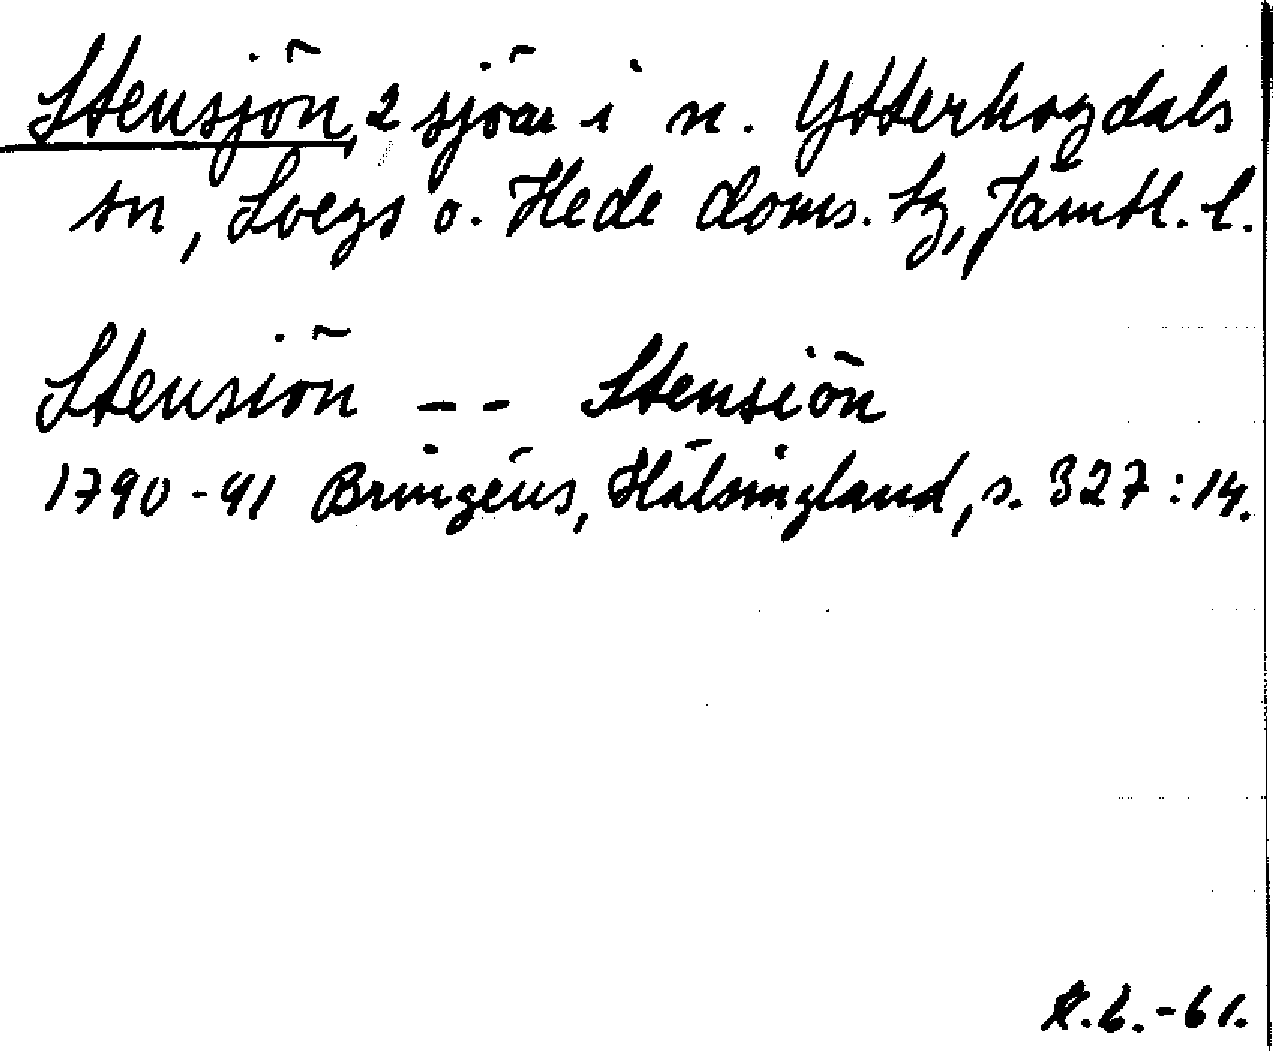 Stensjön, 2 sjöar i n. Ytterhogdals
sn, Svegs o. Hede doms. tg, Jämtl. l.
Stensiön -- Stensiön
1790-91 Bringéus, Hälsingland, s. 327:14.
A.L.-61.